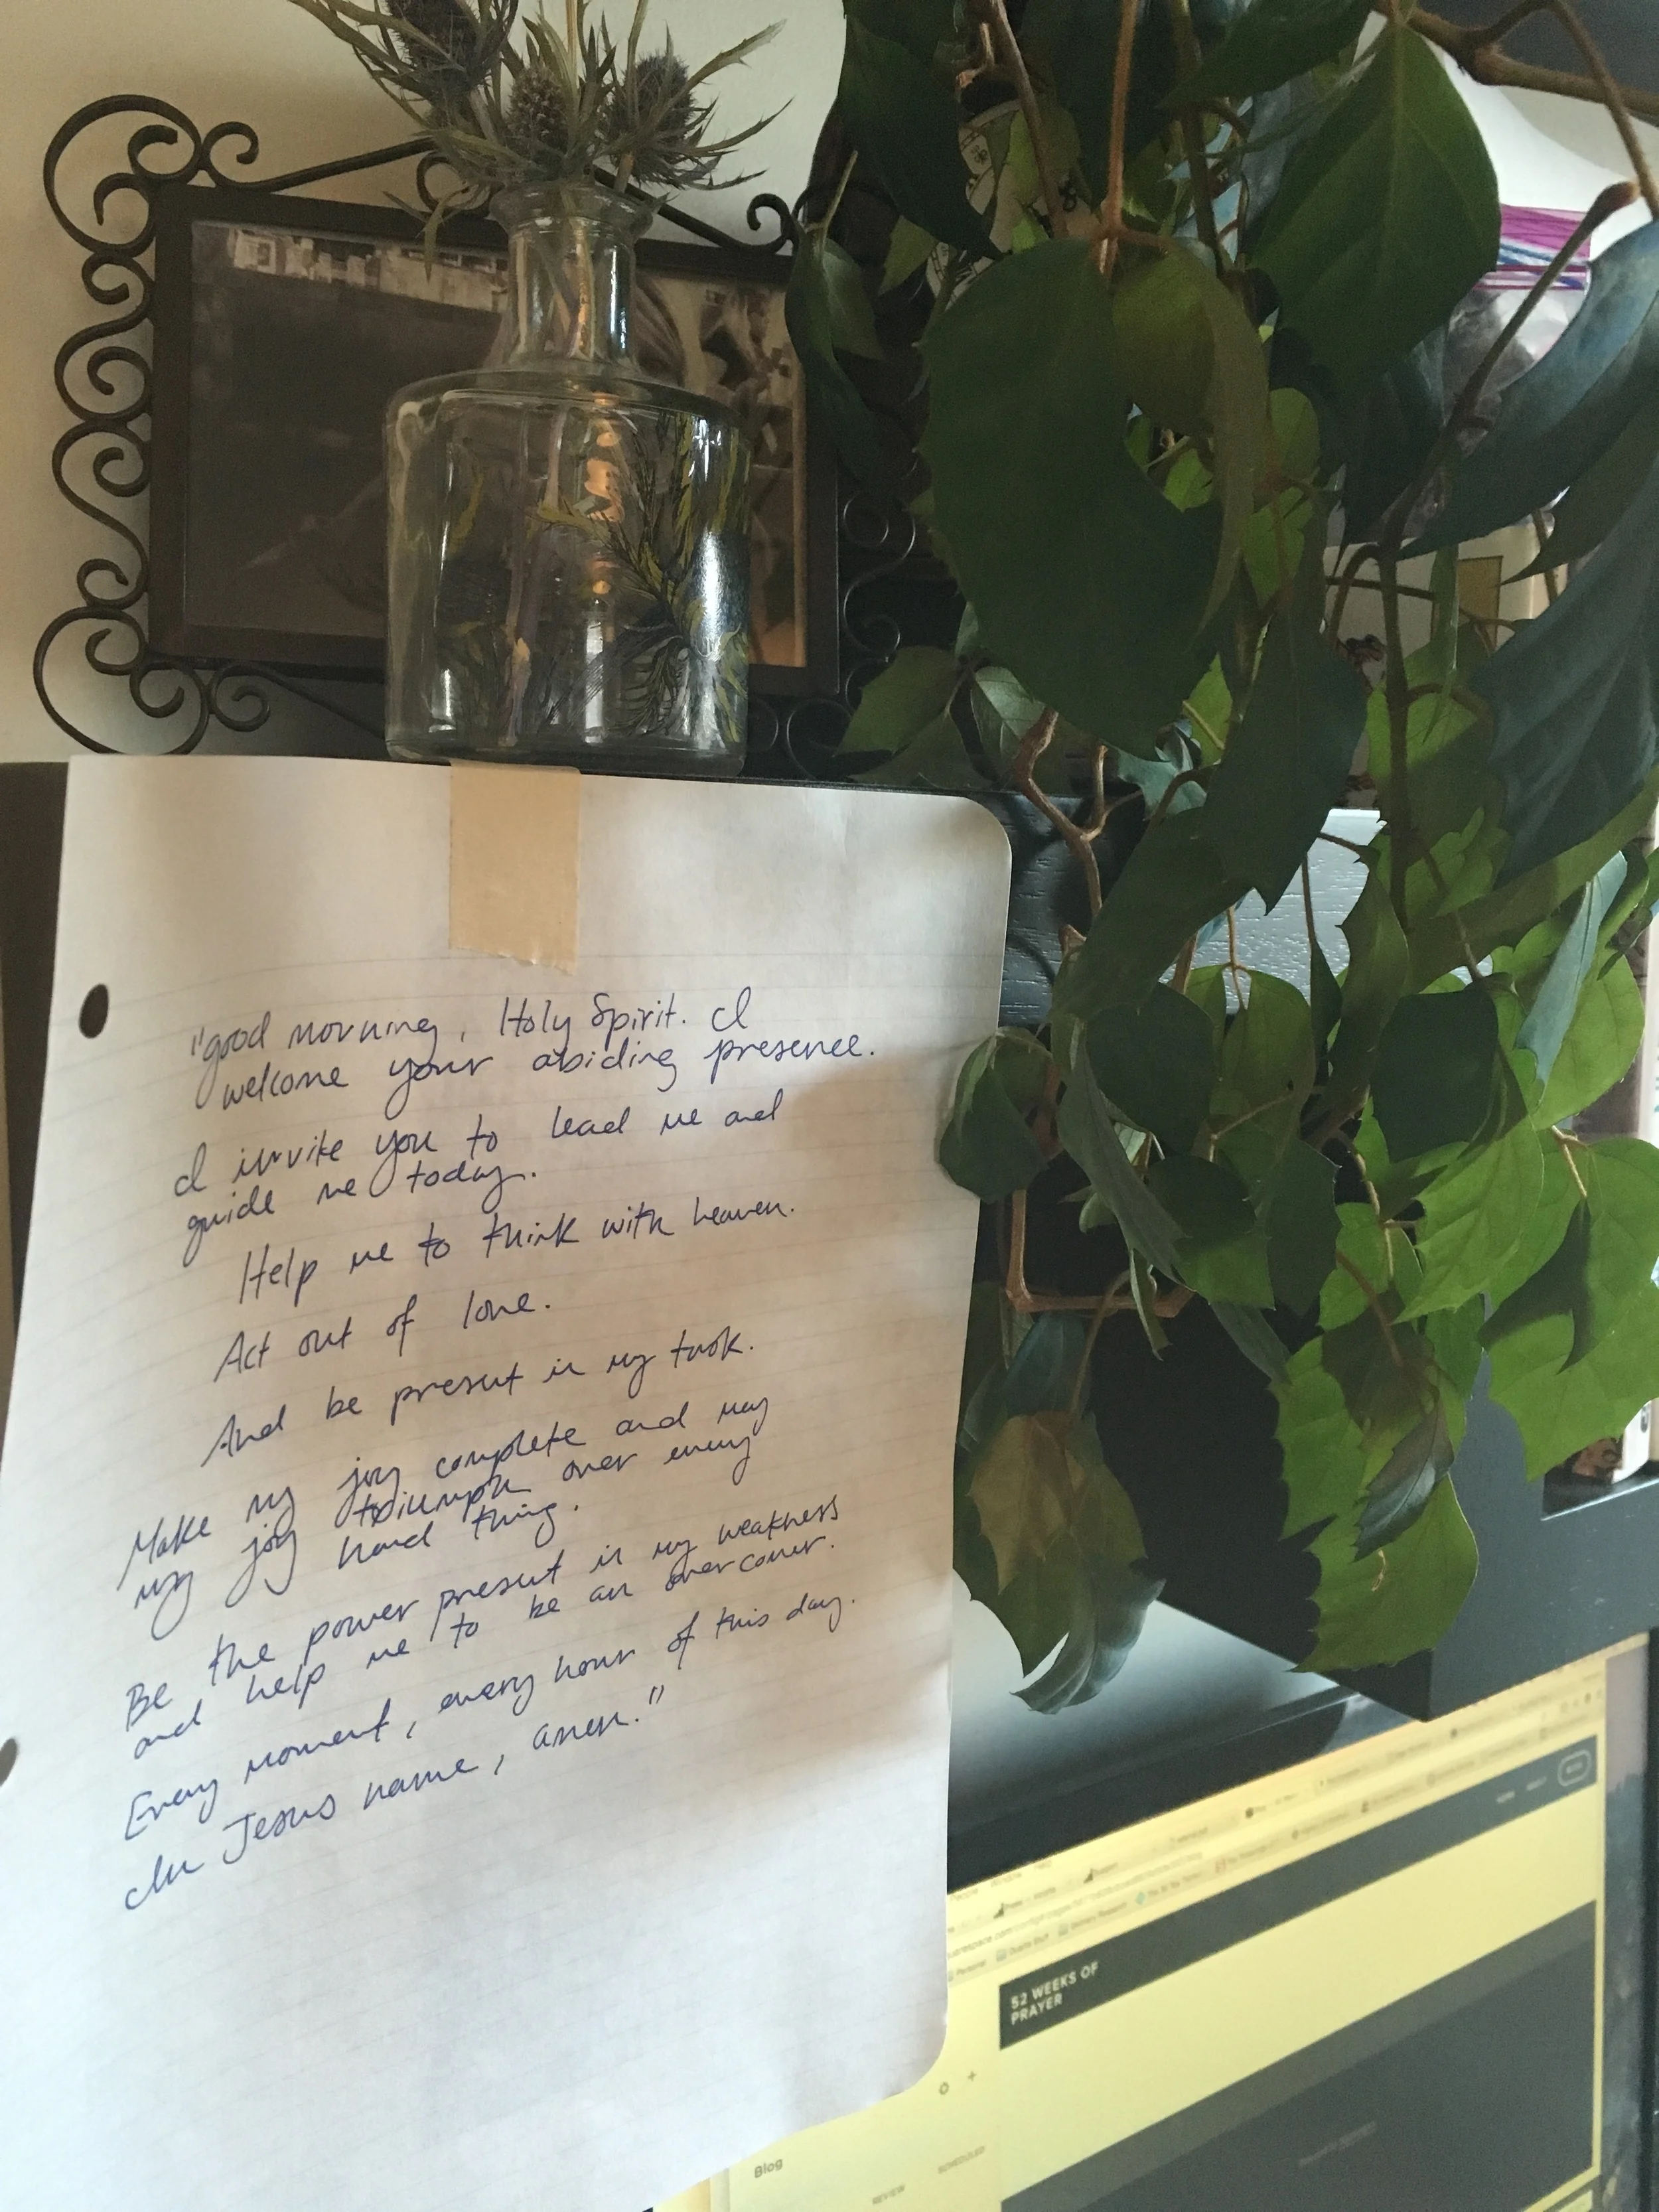 "good morning, Holy Spirit. I
welcome your abiding presence.
I invite you to lead me and
guide me today.
Help me to think with heaven.
Act out of love.
And be present in my task.
Make my joy complete and may
my joy triumph over every
hard thing.
Be the power present in my weakness
and help me to be an overcomer.
Every moment, every hour of this day.
In Jesus name, amen."
52 WEEKS OF
PRAYER
Blog
REVIEW
SCHEDULED